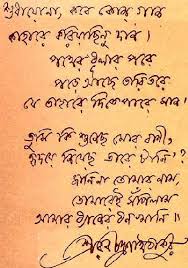 শুধায়োনা, কবে কোন গান
কাহারে করিয়াছিনু দান।
পথের ধূলার পরে
পড়ে আছে তারি তরে
যে তাহারে দিতে পারে মান।
তুমি কি শুনেছ মোর বাণী,
হৃদয়ে নিয়েছ তারে টানি?
জানিনা তোমার নাম,
তোমারেই সঁপিলাম
আমার ধ্যানের ধনখানি॥
শ্রীরবীন্দ্রনাথ ঠাকুর